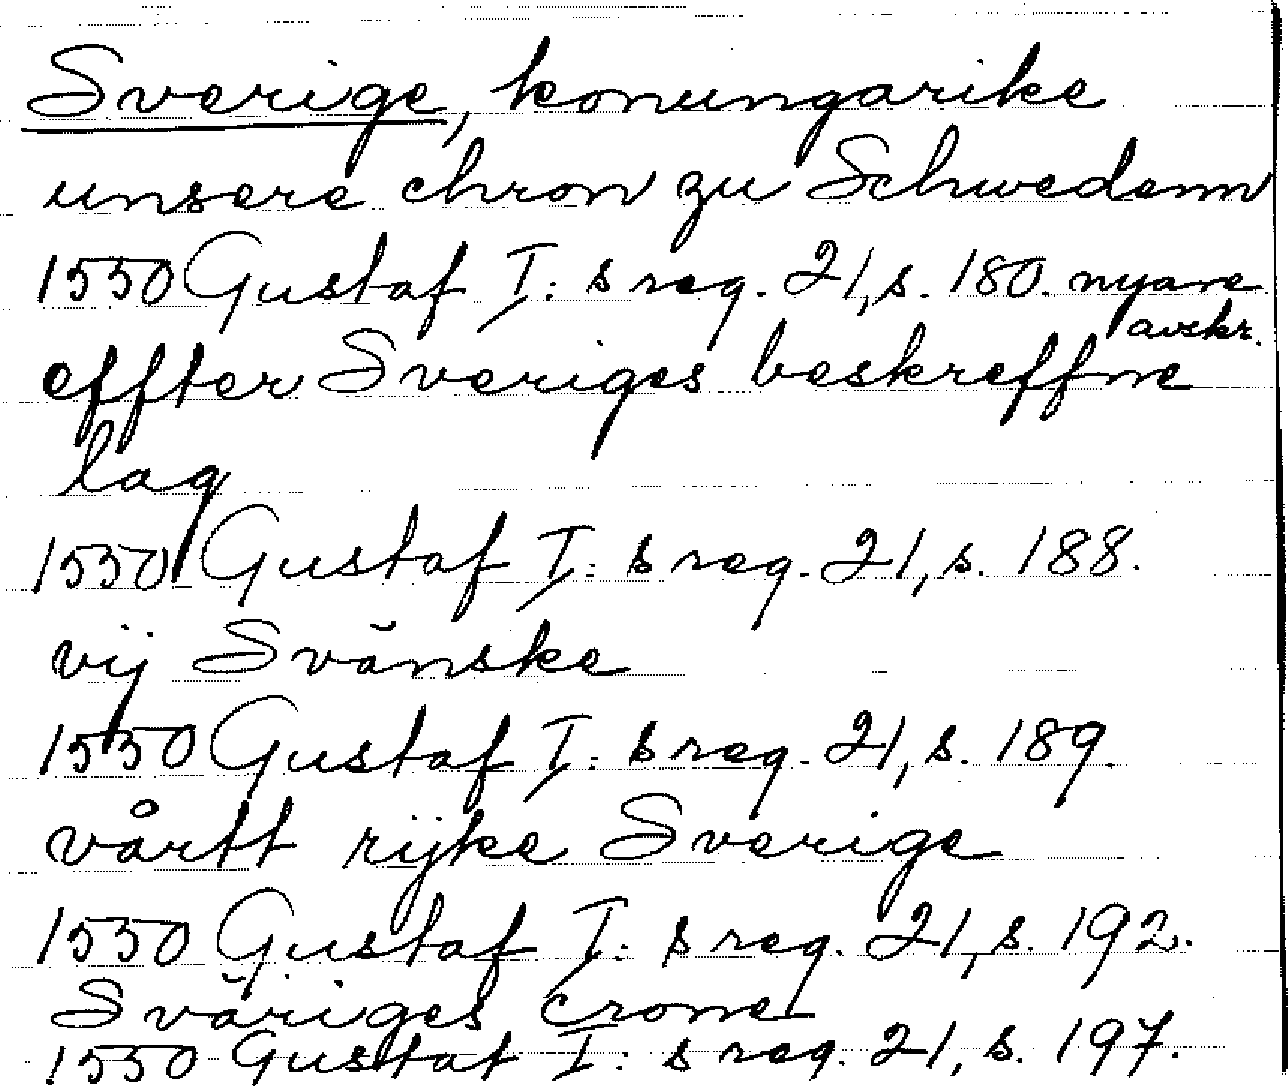 Sverige, konungarike
unsere chron zu Schwedenn
1550 Gustaf I: s reg. 21, s. 180. nyare
avskr.
effter Sveriges beskreffne
lag
1550 Gustaf I: s reg. 21, s. 188.
vij Svänske
1550 Gustaf I: s reg. 21, s. 189.
vårtt rijke Sverige
1550 Gustaf I: s reg. 21, s. 192.
Sväriges crone
1550 Gustaf I: s reg. 21, s. 197.